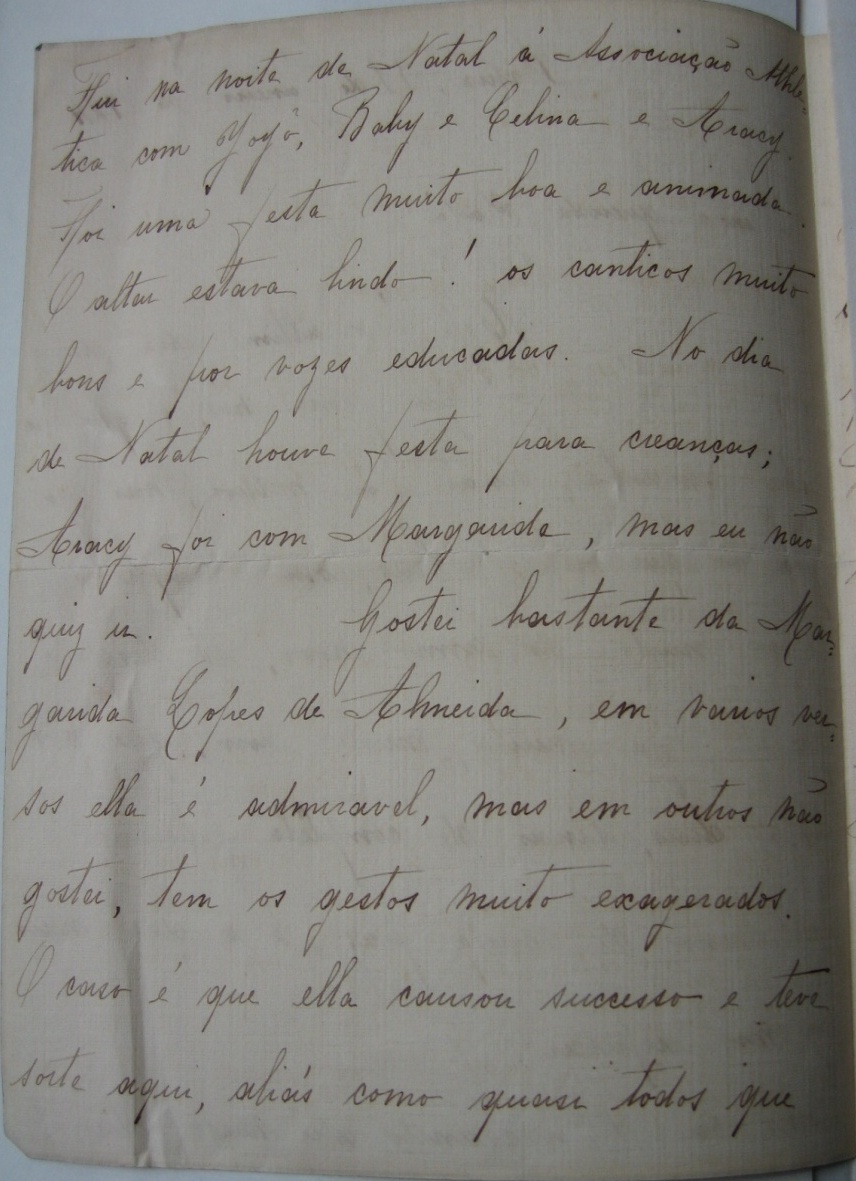 Fui na noite de Natal á Associação Athle-
tica com Yoyô, Baby e Celina e Aracy.
Foi uma festa muito boa e animada.
O altar estava lindo! os canticos muito
bons e por vozes educadas. No dia
de Natal houve festa para creanças;
Aracy foi com Margarida, mas eu não
quiz ir. Gostei bastante da Mar=
garida Lopes de Almeida, em varios ver=
sos ella é admiravel, mas em outros não
gostei, tem os gestos muito exagerados.
O caso é que ella causou successo e teve
sorte aqui, aliás como quasi todos que